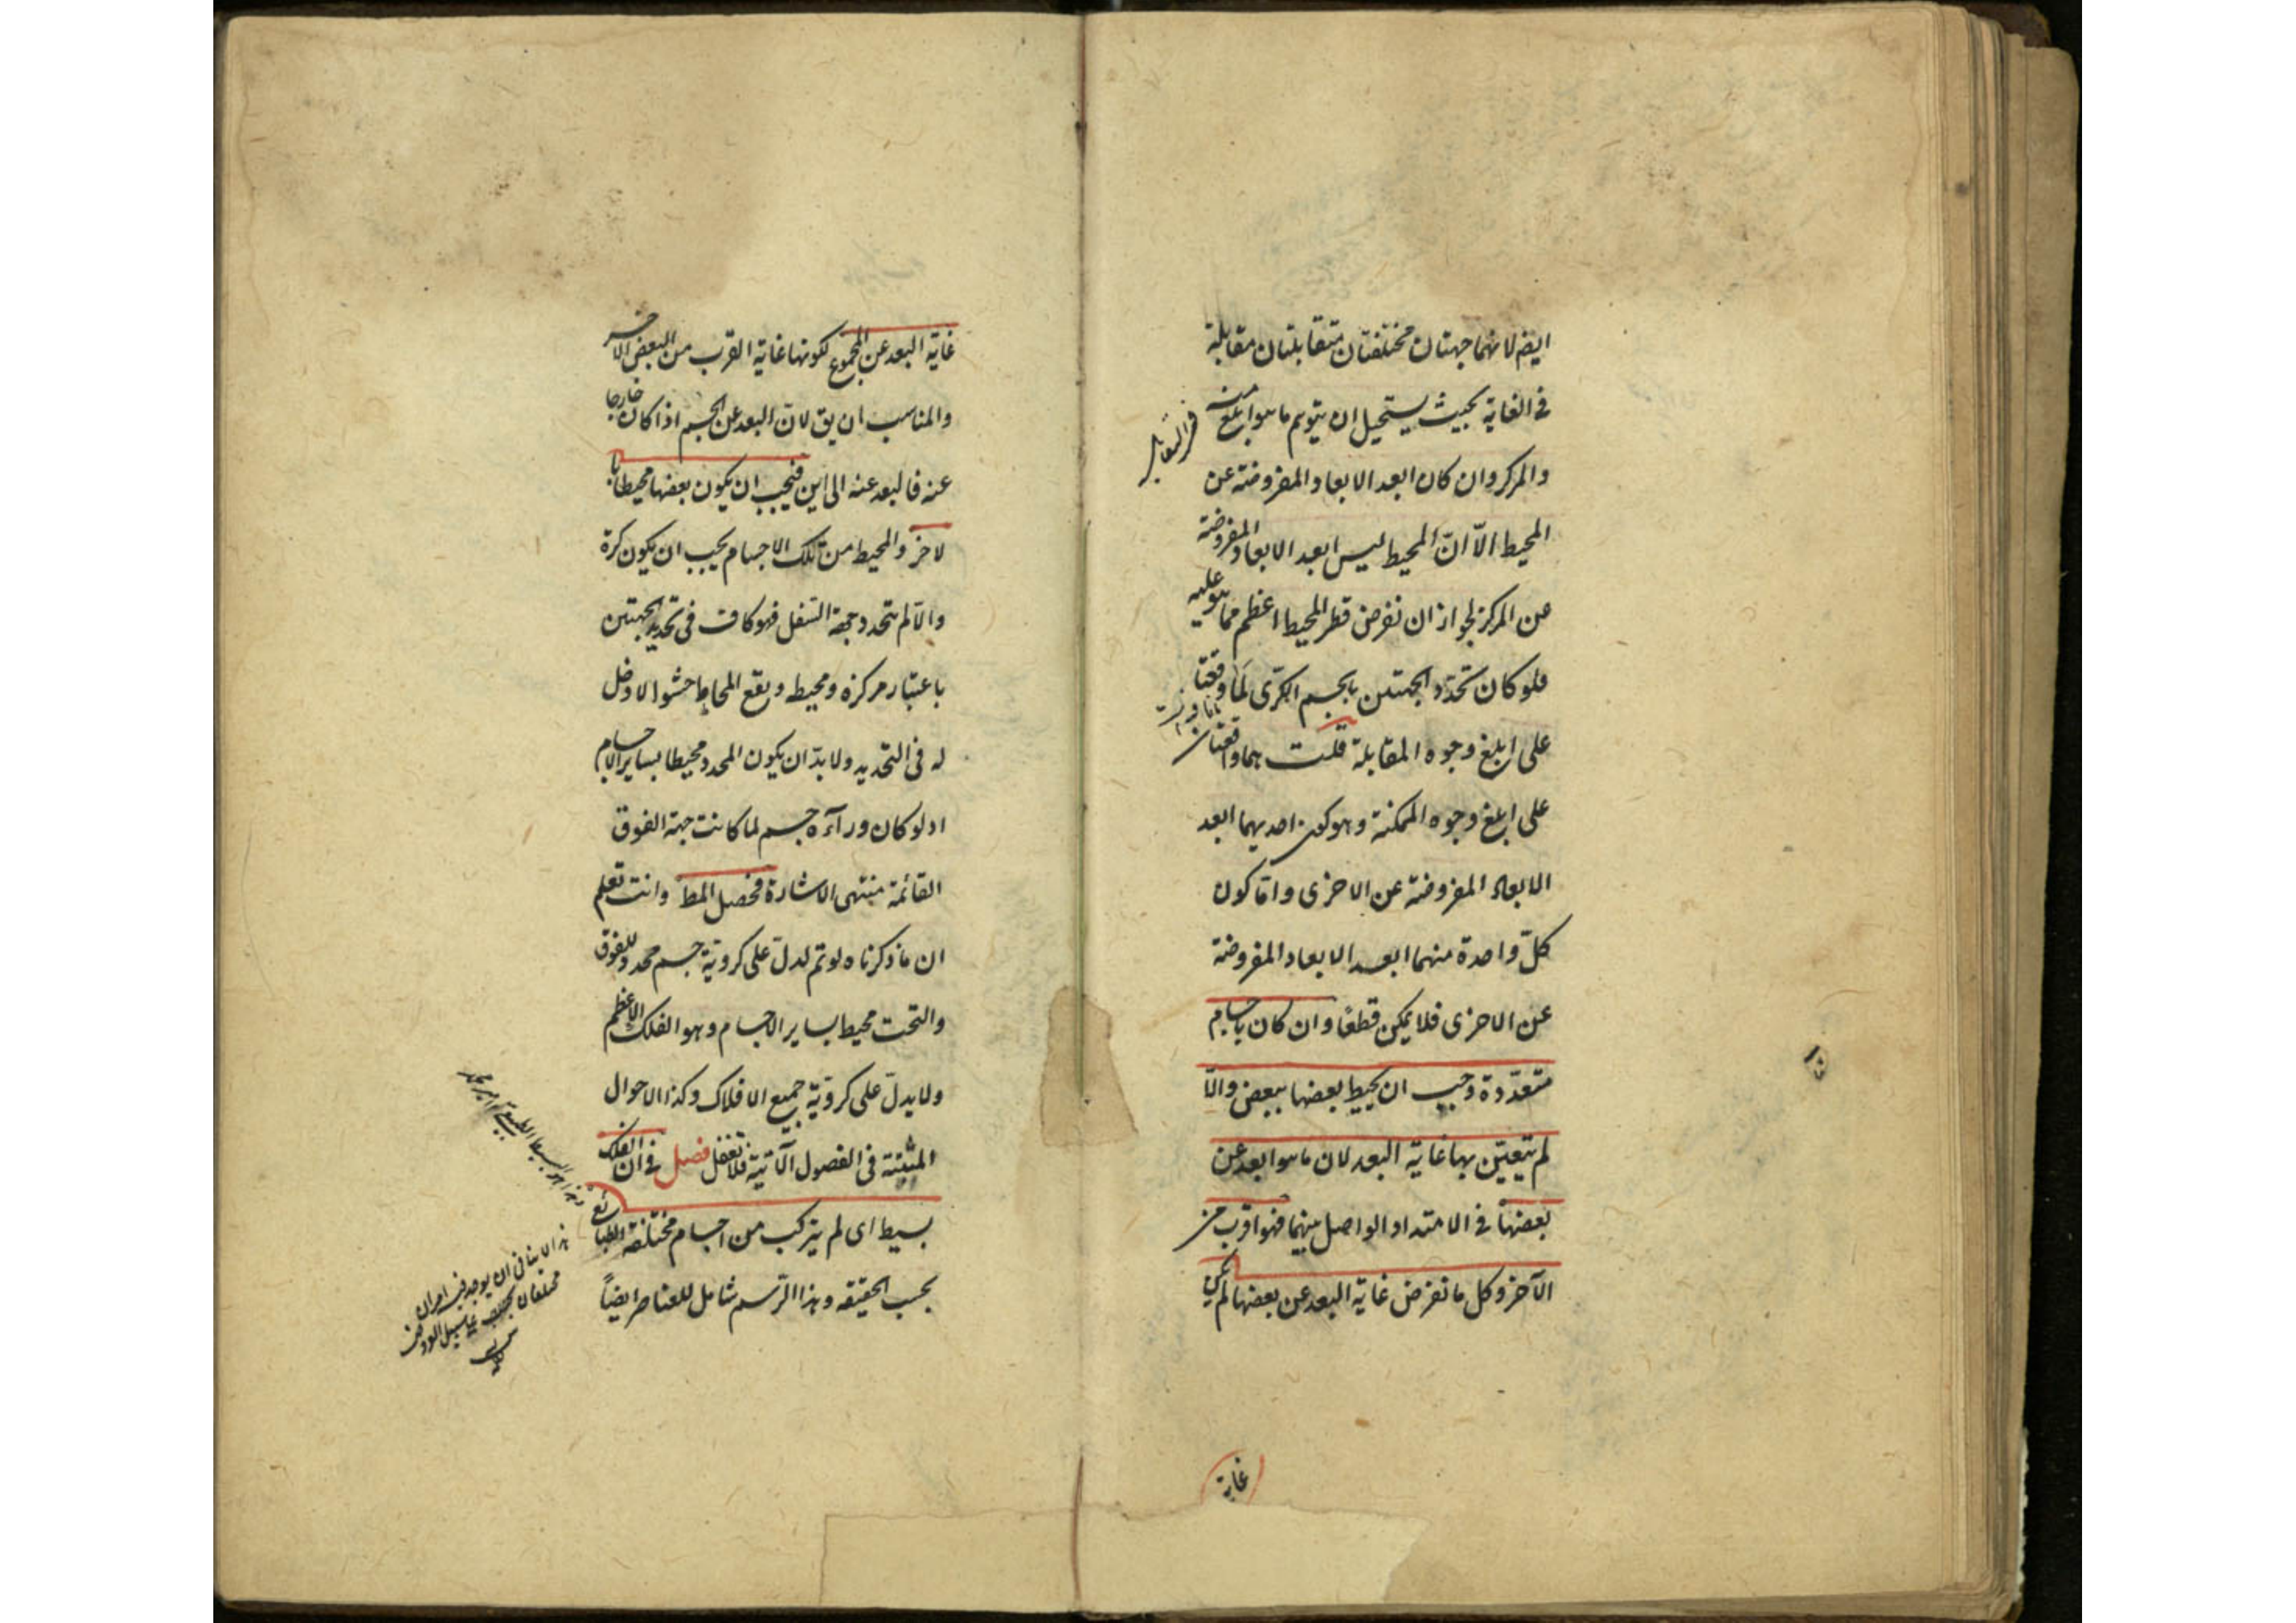 ايضر لانهما جهتان مختلفتان متقابلتان مقابلة
فى الغاية بحيث يستحيل ان يتوهم ما هو ابلغ منه
فى التقابل
والمركز وان كان ابعد الابعاد المفروضة عن
المحيط الّا انّ المحيط ليس ابعد الابعاد المفروضة
عن المركز لجواز ان نفرض قطر المحيط اعظم مما هو عليه
فلو كان تحدّد الجهتين بالجسم الكرّى لَمَا وقعتا
على ابلغ وجوه المقابلة قلت هما واقعتان
على ابلغ وجوه الممكنة وهو كون احديهما ابعد
الابعاد المفروضة عن الاخرى وامّا كون
كلّ واحدة منهما ابعد الابعاد المفروضة
عن الاخرى فلا يمكن قطعًا وان كان باجسام
متعدّدة وجب ان يحيط بعضها ببعض والّا
لم يتعيّن بها غاية البعد لان ما هو ابعد عن
بعضها فى الامتداد الواصل بينهما فهو اقرب من
الآخر وكل ما نفرض غاية البعد عن بعضها لم يكن
غاية
غاية البعد عن المجموع لكونها غاية القرب من البعض الاخر
والمناسب ان يق لانّ البعد عن الجسم اذا كان خارجا
عنه فالبعد عنه الى اين فيجب ان يكون بعضها محيطا با
لاخر والمحيط من تلك الاجسام يجب ان يكون كرة
والّا لم تتحدد جهة السّفل فهو كاف فى تحديد الجهتين
باعتبار مركزه ومحيط ويقع المحاط حشوا لا دخل
له فى التحديد ولا بدّ ان يكون المحدد محيطا بساير الاجسام
اد لو كان ورآءه جسم لما كانت جهة الفوق
القائمة منتهى الاشارة فحصل المط وانت تعلم
ان ما ذكرناه لو تم لدلّ على كرويّة جسم محدد للفوق
والتحت محيط بساير الاجسام وهو الفلك الاعظم
ولا يدلّ على كرويّة جميع الافلاك وكذا الاحوال
المثبتة فى الفصول الآتية فلا تغفل فصل فى ان الفلك
بسيط اى لم يتركب من اجسام مختلفة الطبائع
بحسب الحقيقه وهذا الرّسم شامل للعناصر ايضاً
هذا لا ينافى ان يوجد فيه امران
مختلفان